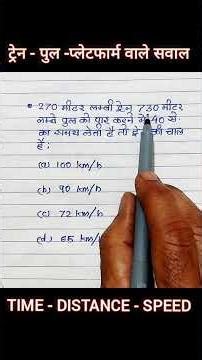 ट्रेन - पुल -प्लेटफार्म वाले सवाल
270 मीटर लम्बी ट्रेन 730 मीटर
लम्बे पुल को पार करने में 40 से.
का समय लेती है तो ट्रेन की चाल
है :
(a) 100 km/h
(b) 90 km/h
(c) 72 km/h
(d) 65 km/h
TIME - DISTANCE - SPEED